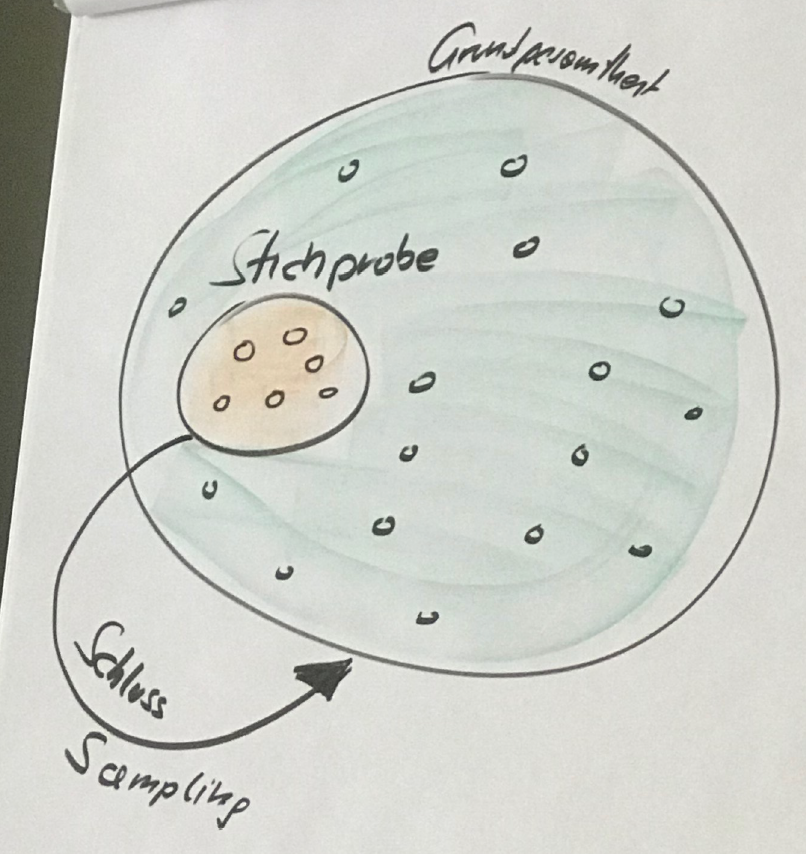 Grundgesamtheit
Stichprobe
Schluss
Sampling